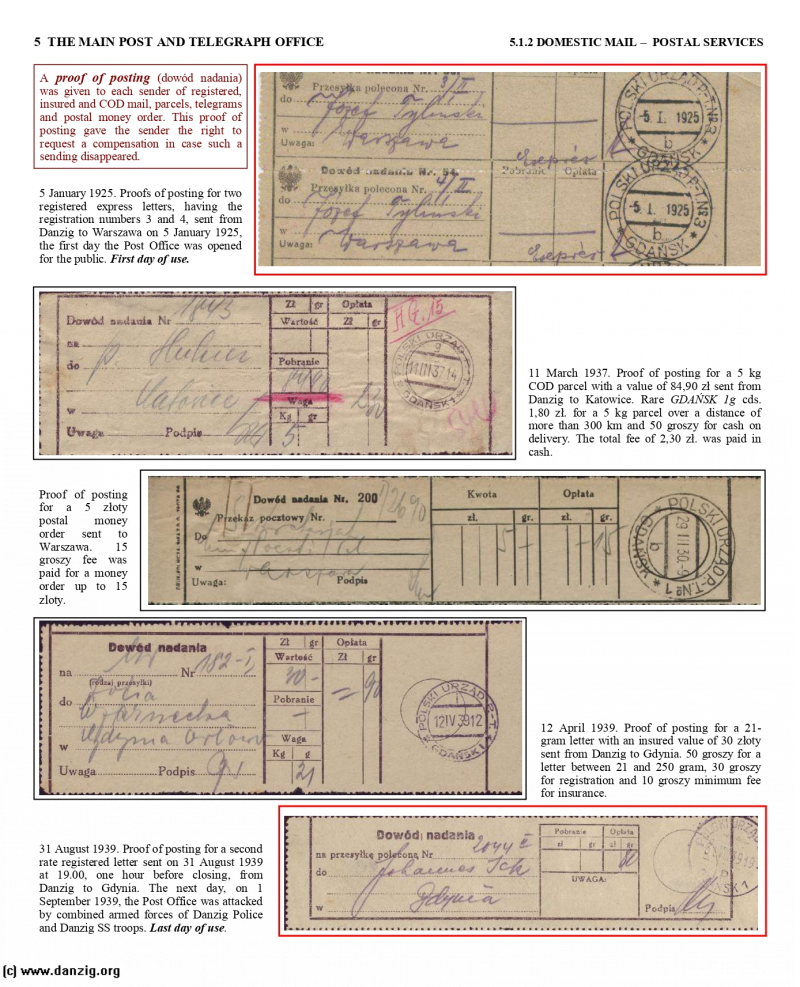 5 THE MAIN POST AND TELEGRAPH OFFICE
5.1.2 DOMESTIC MAIL – POSTAL SERVICES
A proof of posting (dowód nadania)
was given to each sender of registered,
insured and COD mail, parcels, telegrams
and postal money order. This proof of
posting gave the sender the right to
request a compensation in case such a
sending disappeared.
5 January 1925. Proofs of posting for two
registered express letters, having the
registration numbers 3 and 4, sent from
Danzig to Warszawa on 5 January 1925,
the first day the Post Office was opened
for the public. First day of use.
Przesyłka polecona Nr. 3/II
do Józef Tyliński
w Warszawa
Uwaga:
POLSKI URZĄD P.-T. Nr 3
-5. I. 1925
b
GDAŃSK
Dowód nadania Nr. 54.
Pobranie Opłata
Przesyłka polecona Nr. 4/II
do Józef Tyliński
w Warszawa
Uwaga:
POLSKI URZĄD P.-T. Nr 3
-5. I. 1925
b
GDAŃSK
Dowód nadania Nr 1843
na
do p.
w
Uwaga Podpis
Zł gr Opłata
Wartość Zł gr
Pobranie
Waga
Kg gr
5
POLSKI URZĄD P.-T.
g
11 III 37 14
GDAŃSK 1
11 March 1937. Proof of posting for a 5 kg
COD parcel with a value of 84,90 zł sent from
Danzig to Katowice. Rare GDAŃSK 1g cds.
1,80 zł. for a 5 kg parcel over a distance of
more than 300 km and 50 groszy for cash on
delivery. The total fee of 2,30 zł. was paid in
cash.
Proof of posting
for a 5 złoty
postal money
order sent to
Warszawa. 15
groszy fee was
paid for a money
order up to 15
zloty.
Dowód nadania Nr. 200
Przekaz pocztowy Nr.
Do
w Warszawa
Uwaga: Podpis
Kwota Opłata
zł. gr. zł. gr.
5 – – 15
POLSKI URZĄD P.-T. Nr 1
29 III 30
b
GDAŃSK
Dowód nadania
na Nr 182-I
(rodzaj przesyłki)
do
w Gdynia Orłowo
Uwaga Podpis
Zł gr Opłata
Wartość Zł gr
30 - = 90
Pobranie
Waga
Kg g
21
POLSKI URZĄD P.-T.
12 IV 39 12
GDAŃSK 1
12 April 1939. Proof of posting for a 21-
gram letter with an insured value of 30 złoty
sent from Danzig to Gdynia. 50 groszy for a
letter between 21 and 250 gram, 30 groszy
for registration and 10 groszy minimum fee
for insurance.
31 August 1939. Proof of posting for a second
rate registered letter sent on 31 August 1939
at 19.00, one hour before closing, from
Danzig to Gdynia. The next day, on 1
September 1939, the Post Office was attacked
by combined armed forces of Danzig Police
and Danzig SS troops. Last day of use.
Dowód nadania
na przesyłkę poleconą Nr 2044 II
do Johannes Ick
w Gdynia
Pobranie Opłata
zł gr zł gr
80
UWAGA:
Podpis
(c) www.danzig.org